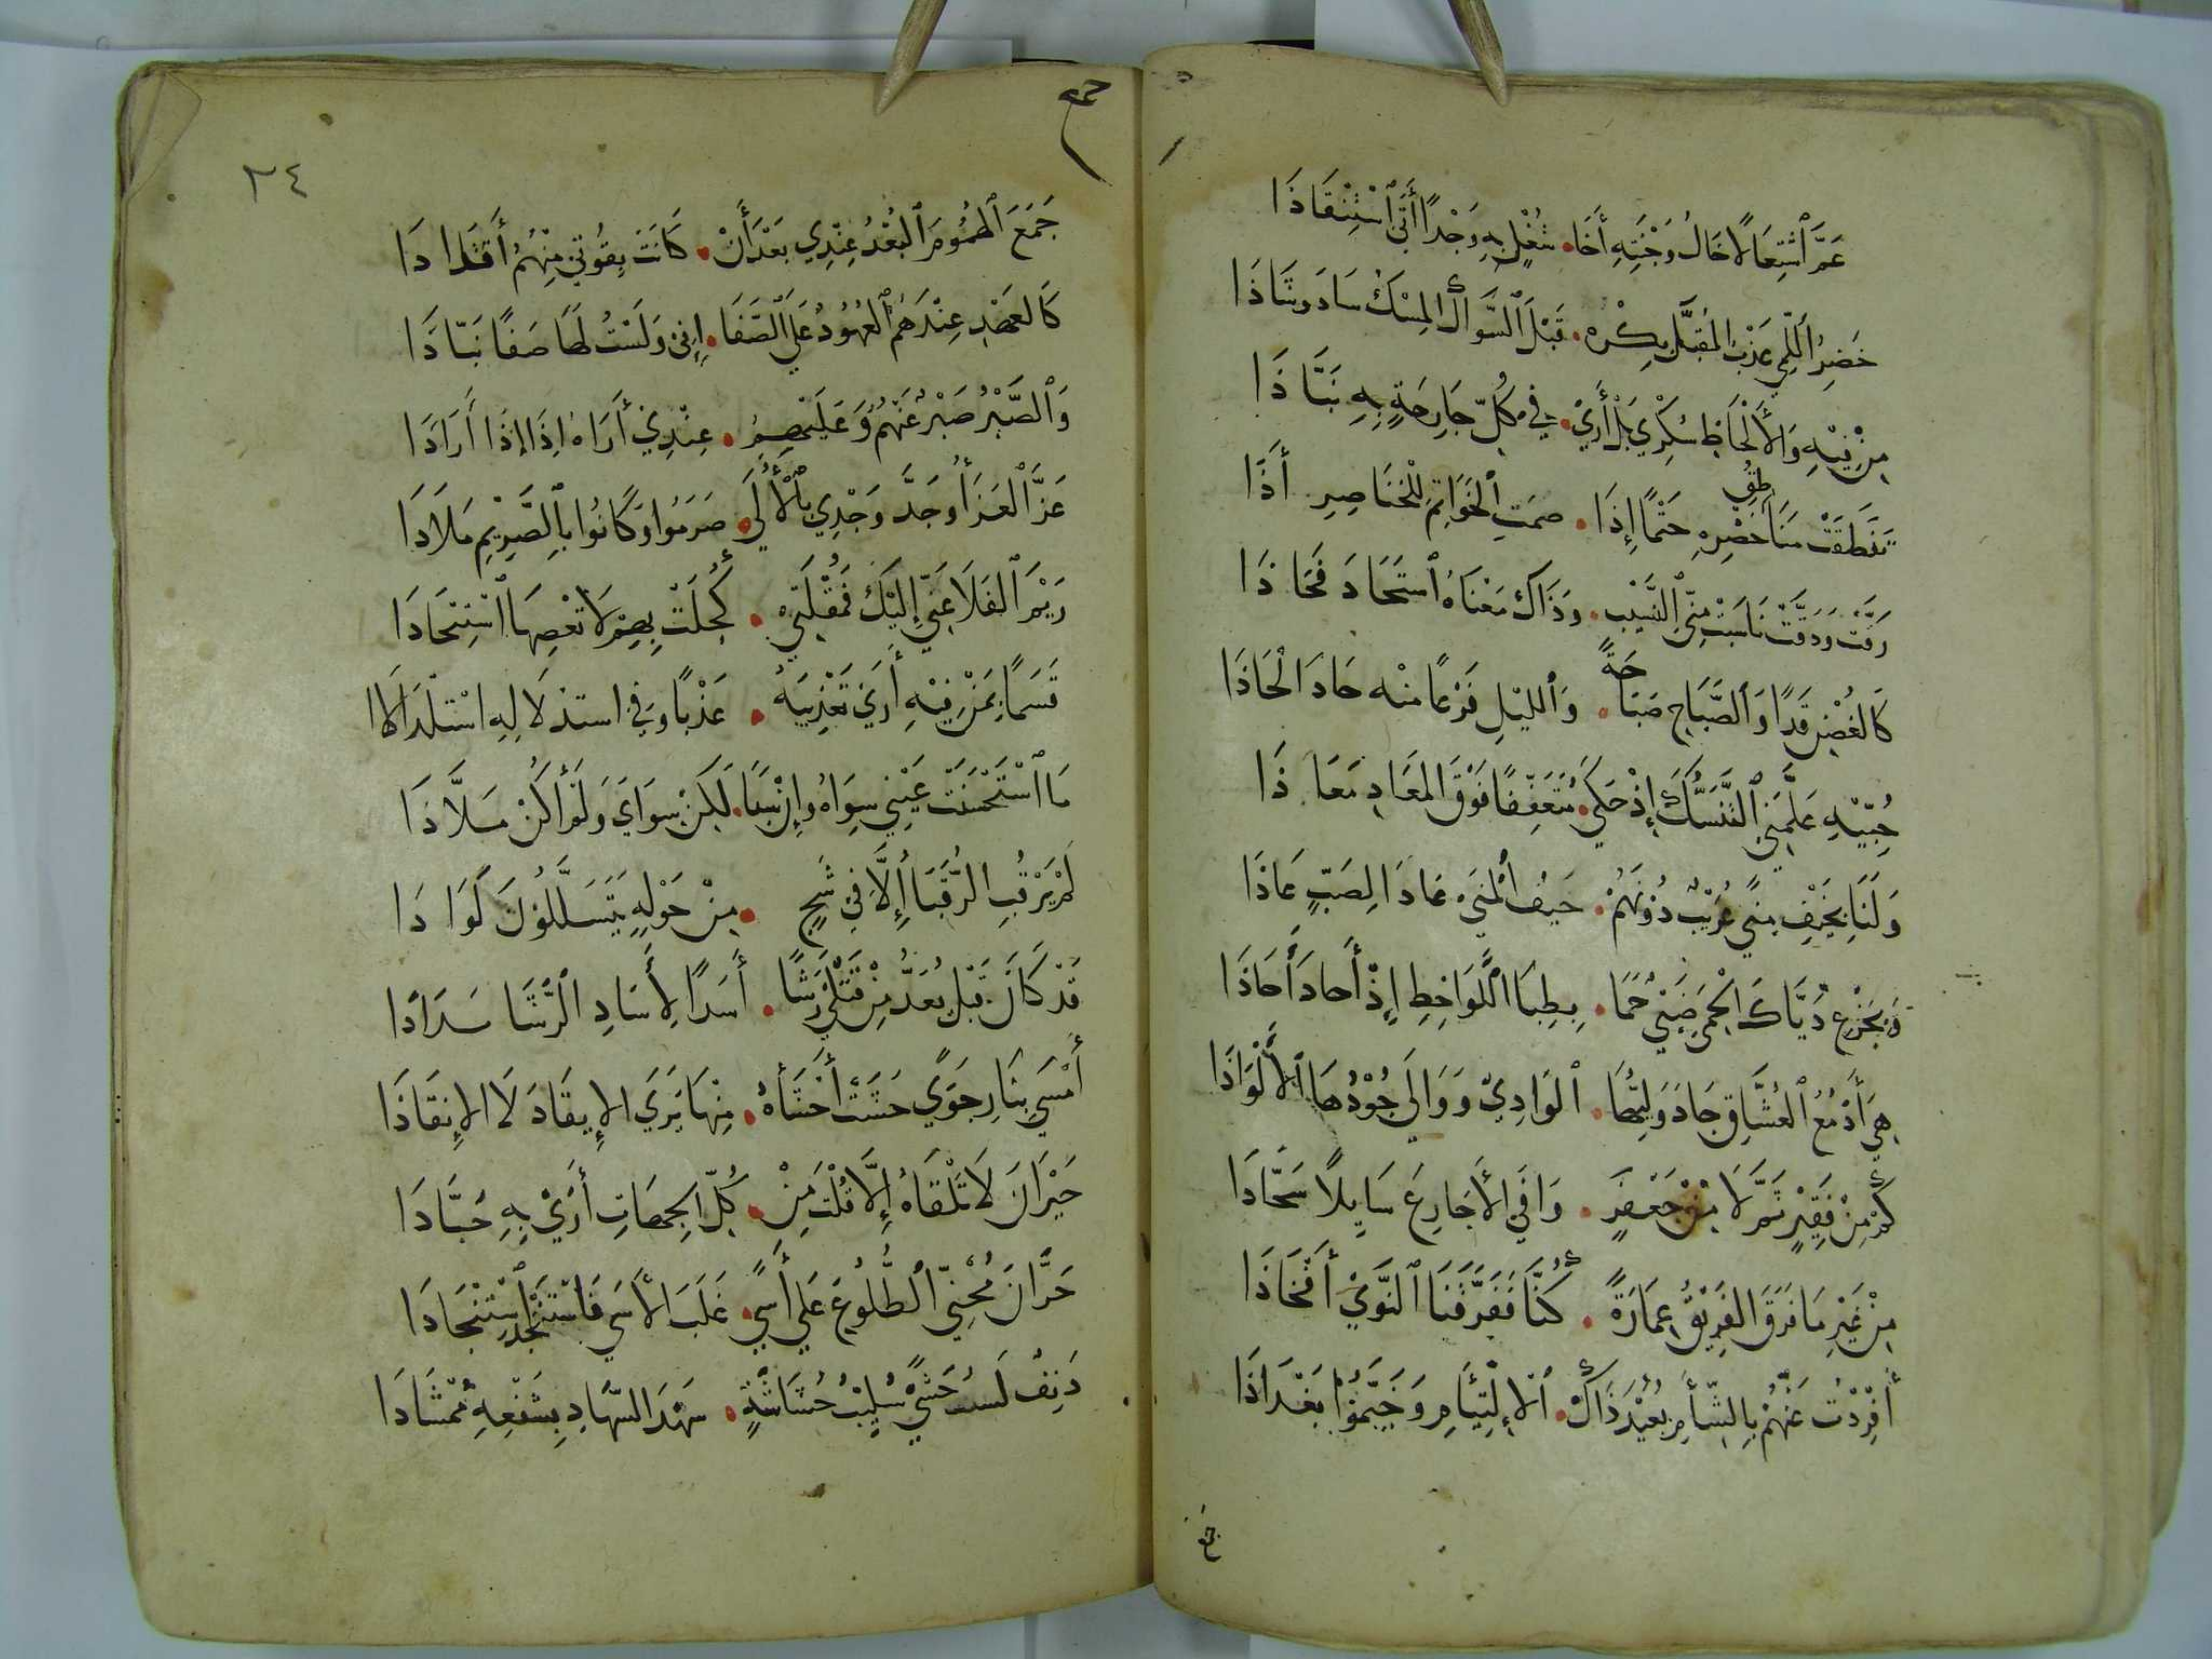 عَمَّ ٱشْتِعَالًا خَالُ وَجْنَتِهِ أَخَا . شُغْلٍ بِهِ وَجْدًا أَبَى ٱسْتِنْقَاذَا
خَصِرُ ٱللَّمَى عَذْبُ المُقَبَّلِ بكرة . قَبْلَ ٱلسِّوَاكِ المِسْكَ سَادَ وشَاذَا
مِنْ فِيْهِ وَالأَلْحَاظِ سُكْرِي بَلْ أَرَى . فِي كُلِّ جَارِحَةٍ بِهِ نَبَّاذَا
نَطَقَتْ مَنَاطِقُ خَصْرِهِ خَتْمًا إِذَا . صَمَتِ ٱلخَوَاتِمُ لِلْخَنَاصِرِ أَذَا
رَقَّتْ وَدَقَّتْ نَاسَبَتْ مِنِّي ٱلنَّسِيْبَ . وَذَاكَ مَعْنَاهُ ٱسْتَحَادَ فَحَاذَا
كَالغُصْنِ قَدًّا وَٱلصَّبَاحِ صَبَاحَةً . وَٱلليْلِ فَرْعًا منه حَادَ الْحَاذَا
حُبِّيْهِ عَلَّمَنِي ٱلتَّنَسُّكَ إِذْ حَكَى . مُتَعَفِّفًا فَوْقَ المَعَادِ مَعَاذَا
وَلَنَا بِخَيْفِ مِنًى عُرَيْبٌ دُوْنَهُمْ . حَيْفُ ٱلمُنَى عَادَا لِصَبٍّ عَاذَا
وَبِجِزْعِ ذَيَّاكَ الْحِمَى ظَبْيٌ حَمَا . بِظِبَا ٱللَّوَاحِظِ إِذْ أَحَادَ أَحَاذَا
هِيَ أَدْمُعُ ٱلعُشَّاقِ جَادَ وَلِيُّهَا . ٱلوَادِيْ وَوَالَى جُوْدُهَا ٱلأَلْوَاذَا
كَمْ مِنْ فَقِيْرٍ ثَمَّ لَا مِنْ جَعْفَرٍ . وَافَى الأَجَارِعَ سَايِلًا شَحَّاذَا
مِنْ غَيْرِ مَا فَرَقَ الفَرِيْقُ عِمَارَةً . كُنَّا فَفَرَّقَنَا ٱلنَّوَى أَفْخَاذَا
أُفْرِدْتُ عَنْهُمْ بِالشَّأمِ بُعَيْدَ ذَاكَ . ٱلإِلْتِئَامِ وَخَيَّمُوْا بَغْدَاذَا
جمع
٢٤
جَمَعَ ٱلهُمُوْمَ ٱلبُعْدُ عِنْدِي بَعْدَ أَنْ . كَانَتْ بِقُرْبِي مِنْهُمُ أَفْذَاذَا
كَالعَهْدِ عِنْدَهُمُ ٱلعُهُوْدُ عَلَى ٱلصَّفَا . إِنِّي وَلَسْتُ لَهَا صَفًا نَبَّاذَا
وَٱلصَّبْرُ صَبْرٌ عَنْهُمُ وَعَلَيْهِمِ . عِنْدِي أَرَاهُ إِذَا إِذَا أَزَاذَا
عَزَّ ٱلعَزَا وَجَدَّ وَجْدِي بِٱلأُلَى . صَرَمُوا وَكَانُوا بِٱلصَّرِيْمِ مَلَاذَا
رِيْمَ ٱلفَلَا عَنِّي إِلَيْكَ فَمُقْلَتِي . كُحِلَتْ بِهِمْ لَا تُغْضِهَا ٱسْتِيْحَاذَا
قَسَمًا بِمَنْ فِيْهِ أَرَى تَعْذِيْبَهُ . عَذْبًا وَفِي استذلَالِهِ اسْتلْذَاذَا
مَا ٱسْتَحْسَنَتْ عَيْنِي سِوَاهُ وإِنْ سَبَا . لَكِنْ سِوَايَ وَلَمْ أَكُنْ مَلَّاذَا
لَمْ يَرْقُبِ الرُّقَبَا إِلَّا فِي شَجٍ . مِنْ حَوْلِهِ يَتَسَلَّلُوْنَ لِوَاذَا
قَدْ كَانَ قَبْلَ يُعَدُّ مِنْ قَتْلَى رَشًا . أَسَدًا لِأَسَادِ ٱلشَّرَا سَذَّاذَا
أَمْسَى بِنَارِ جَوًى حَشَتْ أَحْشَاءَهُ . مِنْهَا يَرَى الإِيقَادَ لَا الإِنقَاذَا
حَيْرَانَ لَا تَلْقَاهُ إِلَّا قُلْتَ مِنْ . كُلِّ الجِهَاتِ أَرَى بِهِ جَبَّاذَا
حَرَّانَ مُحْنِيِّ ٱلضُّلُوْعِ عَلَى أَسًى . غَلَبَ الأَسَى فَاسْتَنْجَذَ ٱسْتِنْجَاذَا
دَنِفٌ لَسِيبُ حَشًى سَلِيْبُ حُشَاشَةٍ . شَهِدَ السُّهَادُ بِشَفْعِهِ مُمْشَاذَا